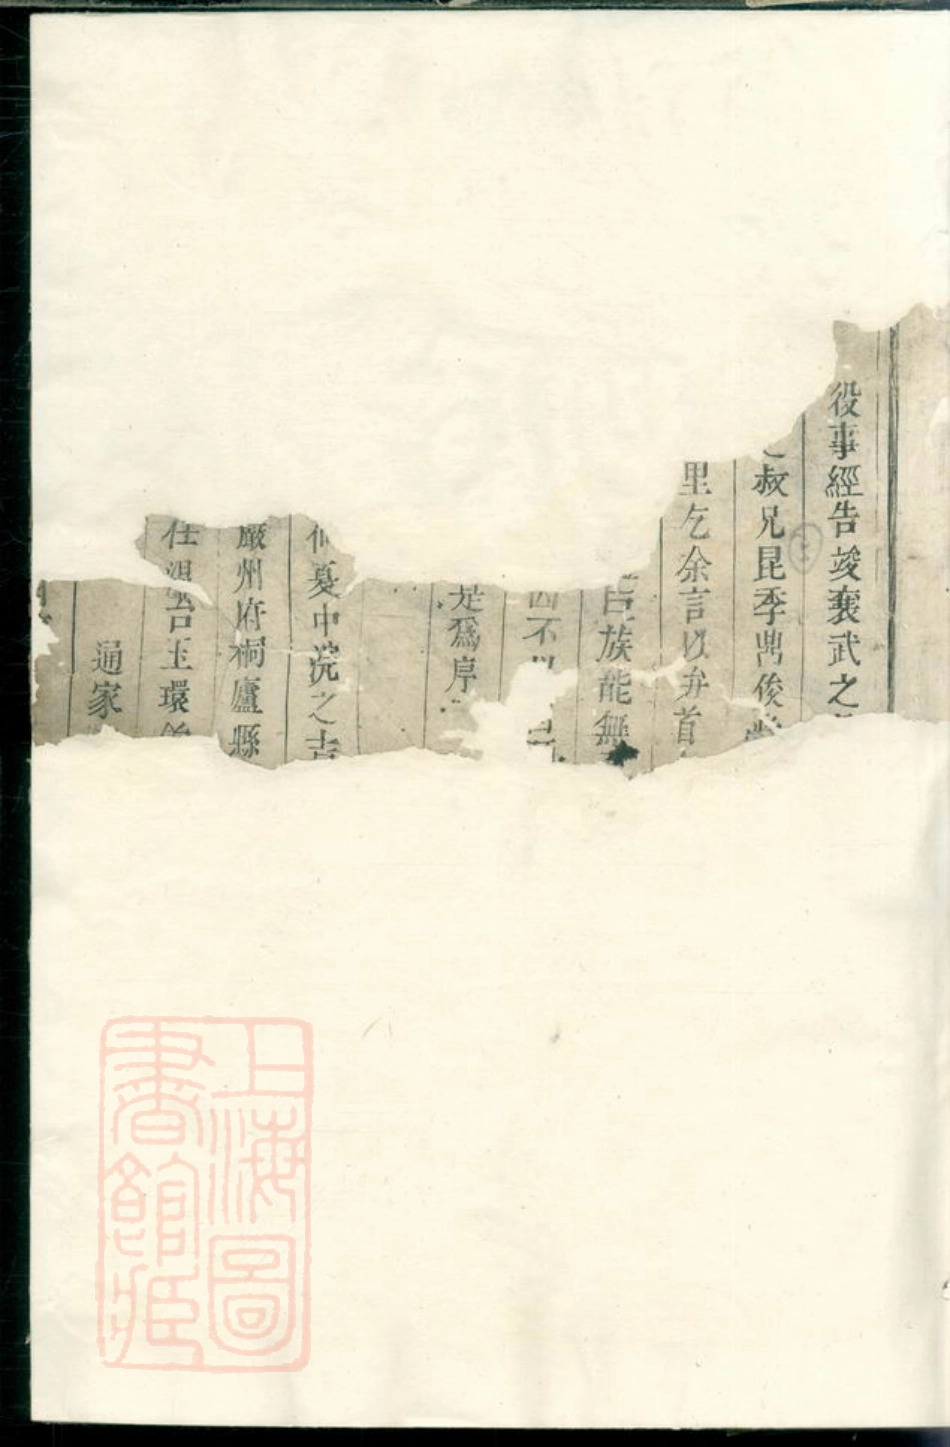 役事經告竣褎武之
叔兄昆季鼎俊
里乞余言以弁首
族能無
四不
是爲序
仲夏中浣之吉
嚴州府桐廬縣
任 玉環
通家
上海圖
書館藏